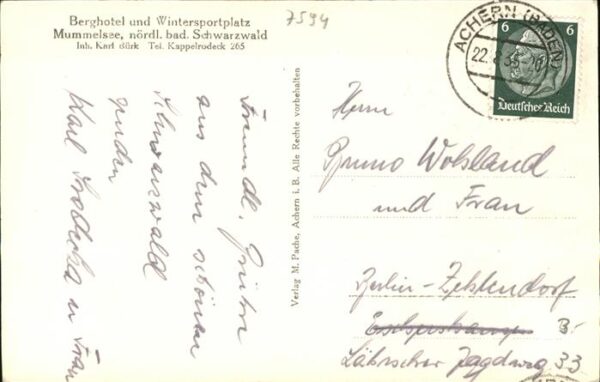 Berghotel und Wintersportplatz
Mummelsee, nördl. bad. Schwarzwald
Inh. Karl Bürk Tel. Kappelrodeck 265
7594
ACHERN (BADEN)
6 6
Deutsches Reich
Freundl. Grüße
aus dem schönen
Schwarzwald
senden
Karl u Frau
Verlag M. Pache, Achern i. B. Alle Rechte vorbehalten
Herrn
Bruno
und Frau
Berlin-Zehlendorf
B-
Jagdweg 33